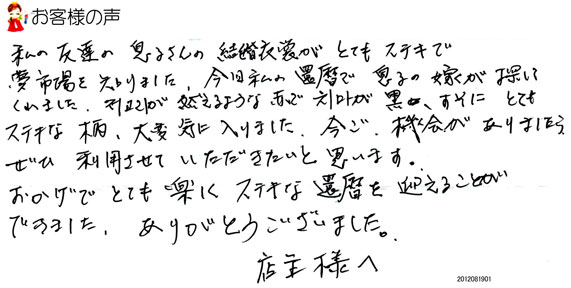 お客様の声
私の友達の息子さんの結婚衣裳がとてもステキで
夢市場を知りました。今回私の還暦で息子の嫁が探して
くれました。対比が映えるような赤で衿が黒、すそにとても
ステキな柄、大変気に入りました。今ご、機会がありましたら
ぜひ利用させていただきたいと思います。
おかげでとても楽しくステキな還暦を迎えることが
できました。ありがとうございました。
店主様へ
2012081901